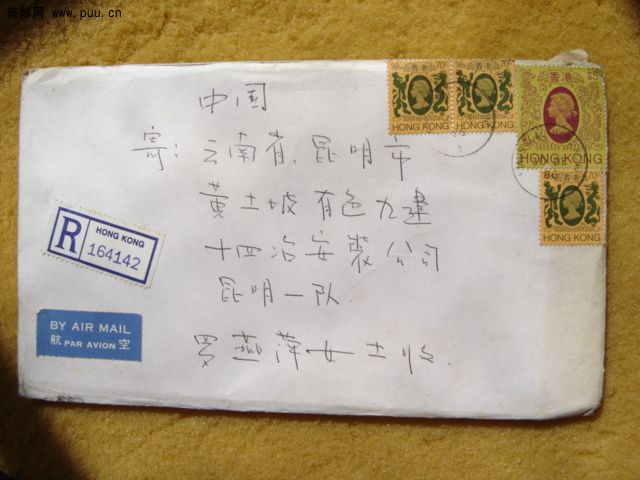 普邮网 www.puu.cn
中国
寄：云南省．昆明市
黄土坡有色九建
十四冶安装公司
昆明一队．
罗燕萍女士收．
香港 70¢
HONG KONG
香港 70¢
HONG KONG
香港 $5
HONG KONG
香港 70¢
HONG KONG
R HONG KONG
164142
BY AIR MAIL
航 PAR AVION 空